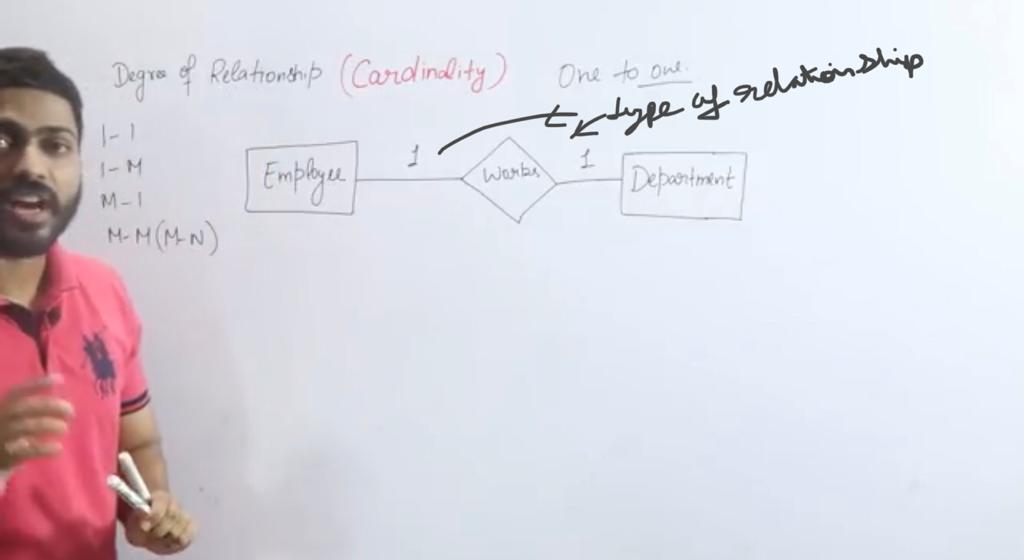 Degree of Relationship (Cardinality) One to one.
type of relationship
1-1
1-M
M-1
M-M (M-N)
Employee 1 Works 1 Department